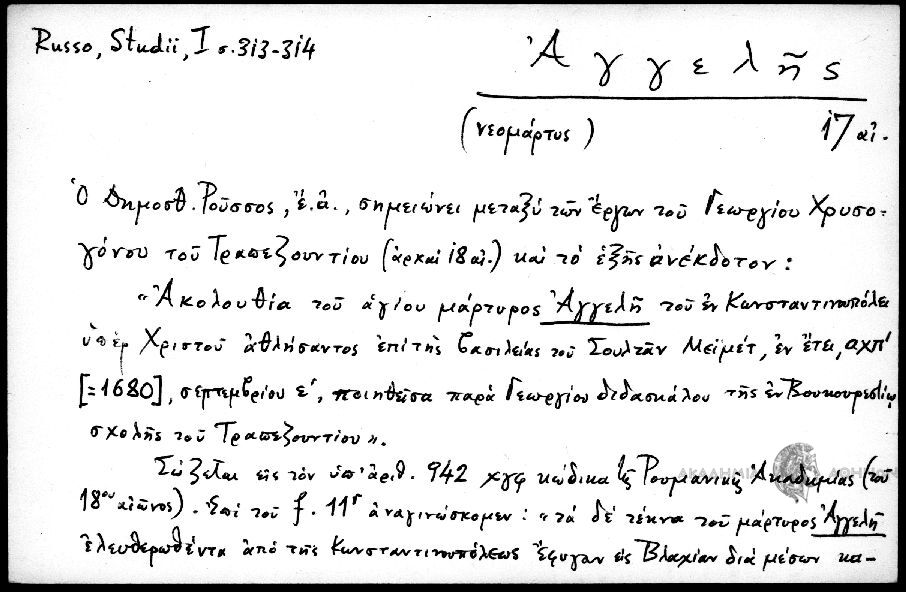 Russo, Studii, I σ. 313-314
Ἀγγελῆς
(νεομάρτυς) 17 αἰ.
Ὁ Δημοσθ. Ροῦσσος, ἔ.ἀ., σημειώνει μεταξὺ τῶν ἔργων τοῦ Γεωργίου Χρυσο-
γόνου τοῦ Τραπεζουντίου (ἀρχαὶ 18 αἰ.) καὶ τὸ ἑξῆς ἀνέκδοτον:
"Ἀκολουθία τοῦ ἁγίου μάρτυρος Ἀγγελῆ τοῦ ἐν Κωνσταντινουπόλει
ὑπὲρ Χριστοῦ ἀθλήσαντος ἐπὶ τῆς βασιλείας τοῦ Σουλτὰν Μεϊμέτ, ἐν ἔτει, αχπ'
[=1680], σεπτεμβρίου ε', ποιηθεῖσα παρὰ Γεωργίου διδασκάλου τῆς ἐν Βουκουρεστίῳ
σχολῆς τοῦ Τραπεζουντίου".
Σῴζεται εἰς τὸν ὑπ' ἀριθ. 942 χγφ κώδικα τῆς Ρουμανικῆς Ἀκαδημίας (τοῦ
18ου αἰῶνος). Ἐπὶ τοῦ f. 11r ἀναγινώσκομεν: "τὰ δὲ τέκνα τοῦ μάρτυρος Ἀγγελῆ
ἐλευθερωθέντα ἀπὸ τῆς Κωνσταντινουπόλεως ἔφυγαν εἰς Βλαχίαν διὰ μέσων κα-
ΑΚΑΔΗΜΙΑ ΑΘΗΝΩΝ